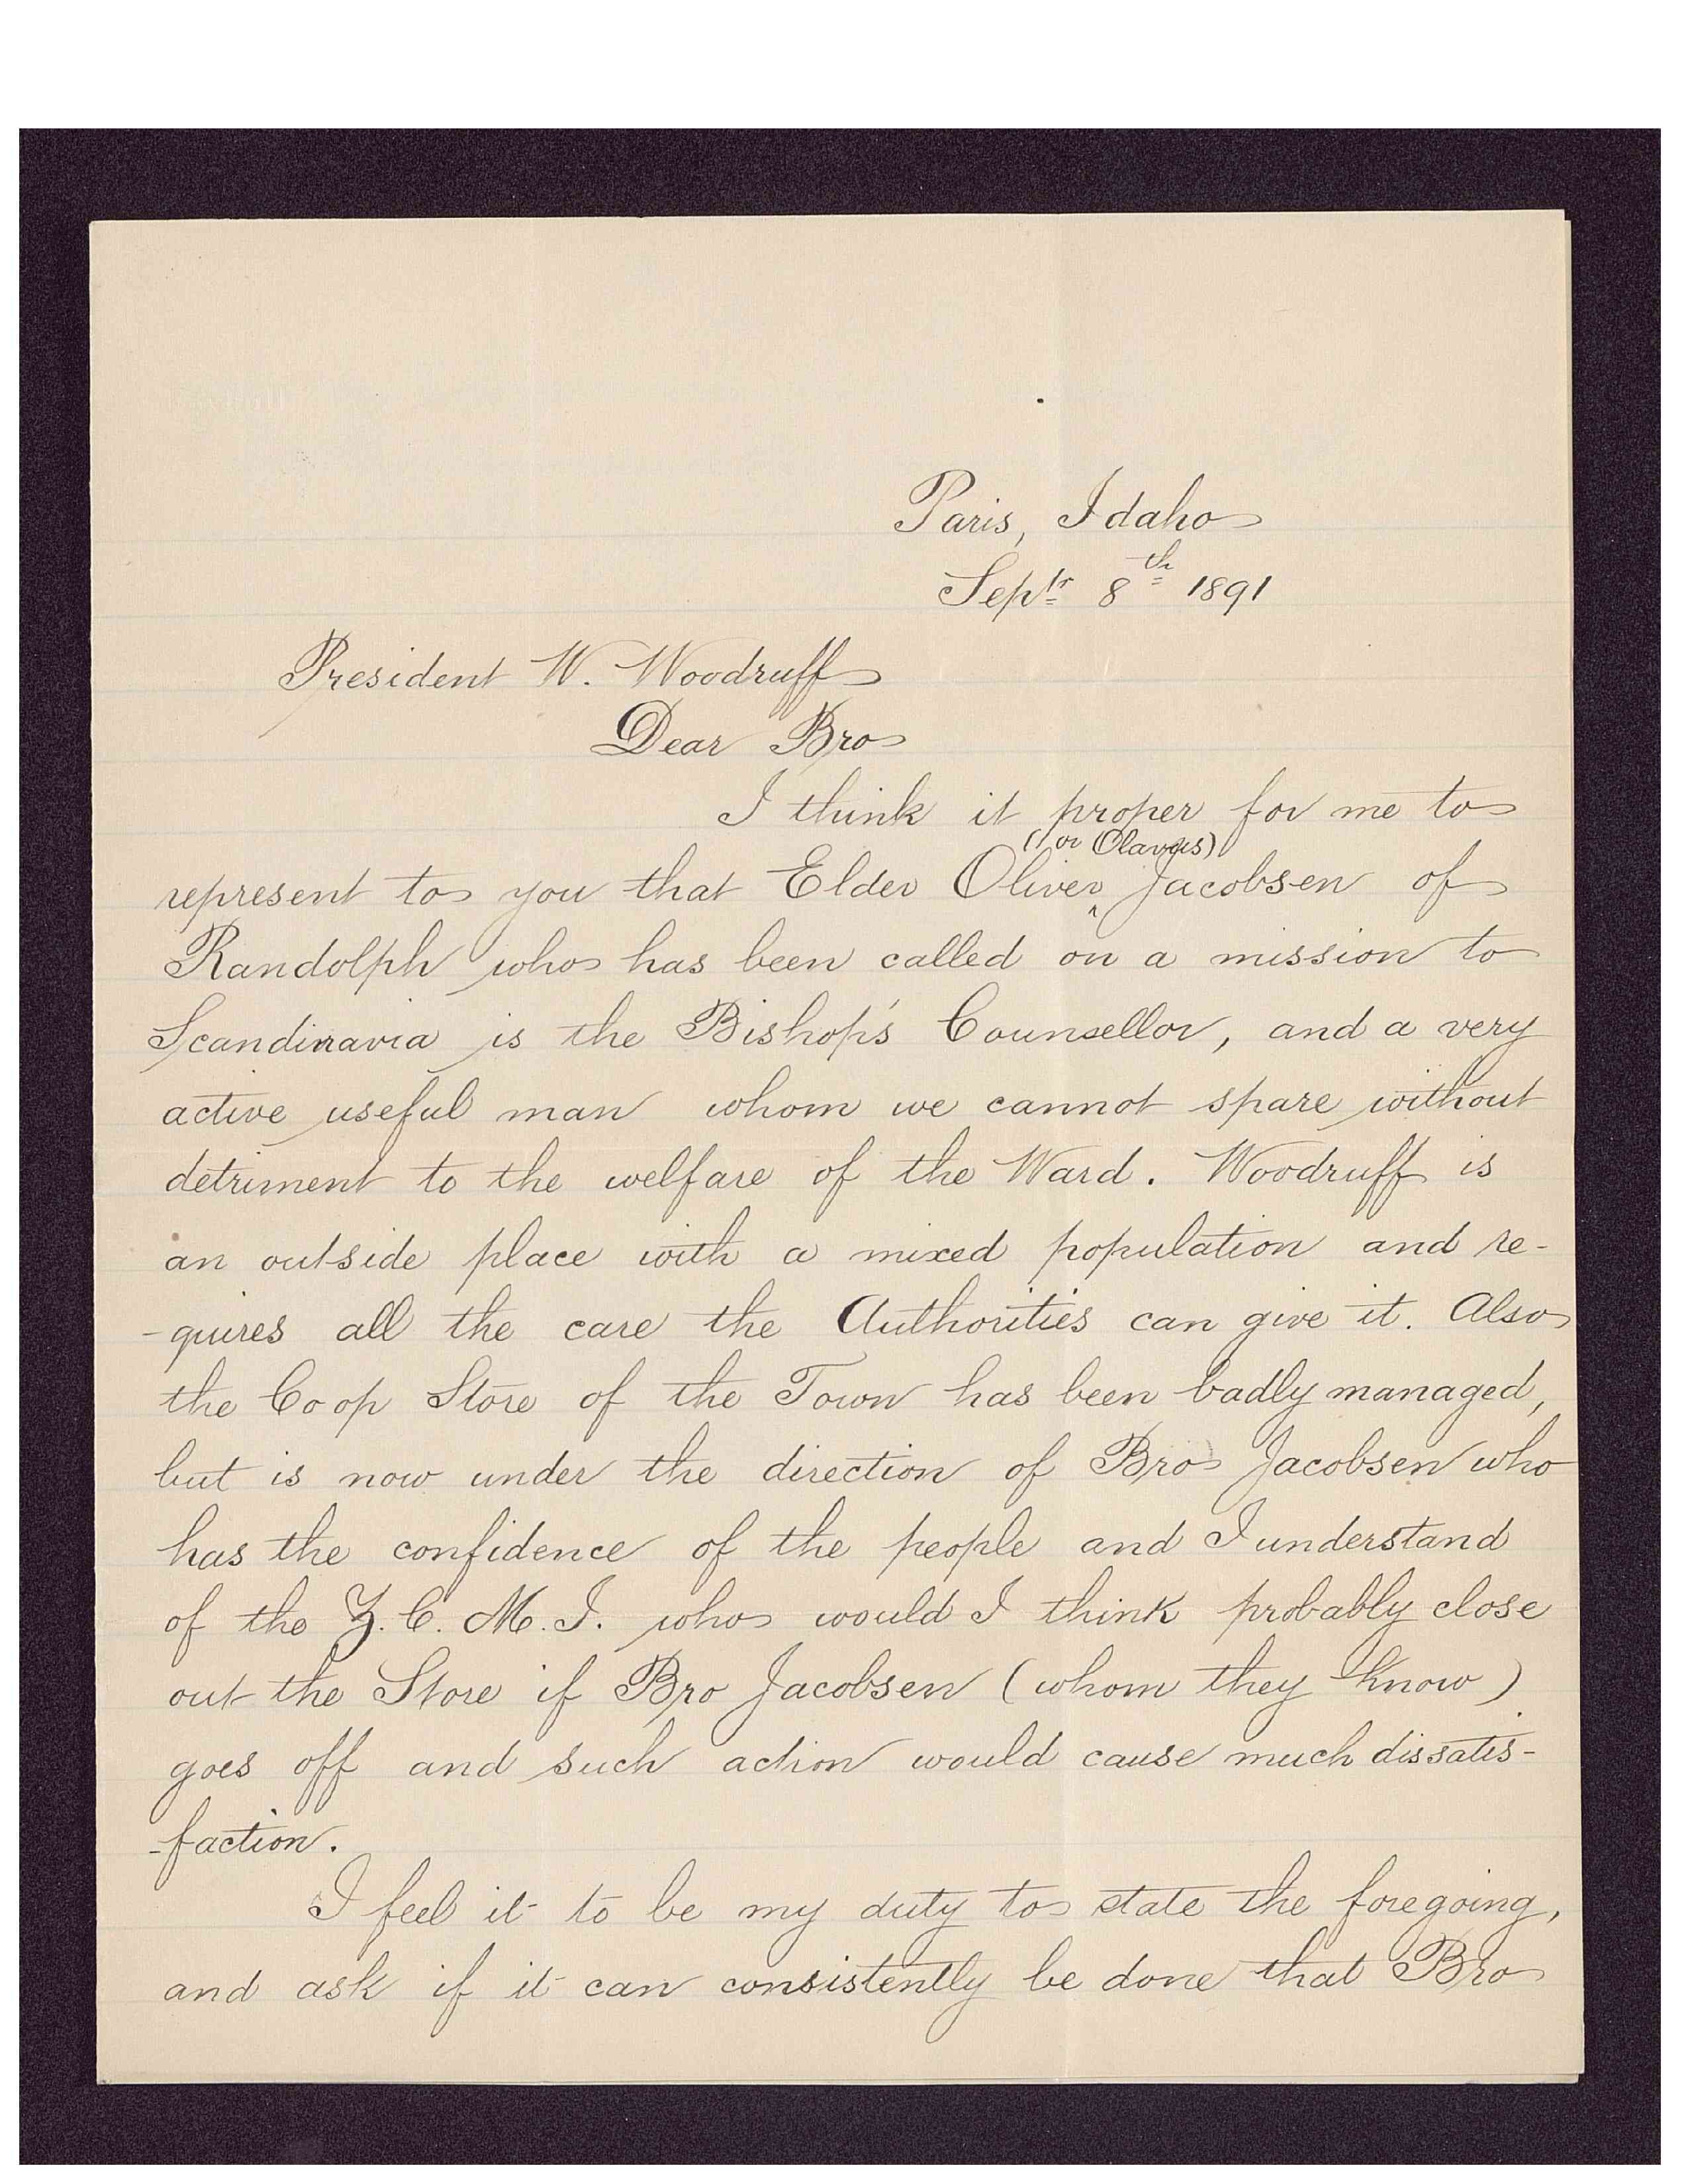 Paris, Idaho
Septr 8th 1891
President W. Woodruff
Dear Bro
I think it proper for me to
(or Olavus)
represent to you that Elder Oliver ^ Jacobsen of
Randolph who has been called on a mission to
Scandinavia is the Bishop's Counsellor, and a very
active useful man whom we cannot spare without
detriment to the welfare of the Ward. Woodruff is
an outside place with a mixed population and re-
-quires all the care the Authorities can give it. Also
the Coop Store of the Town has been badly managed,
but is now under the direction of Bro Jacobsen who
has the confidence of the people and I understand
of the Z. C. M. I. who would I think probably close
out the Store if Bro Jacobsen (whom they know)
goes off and such action would cause much dissatis-
-faction.
I feel it to be my duty to state the foregoing,
and ask if it can consistently be done that Bro